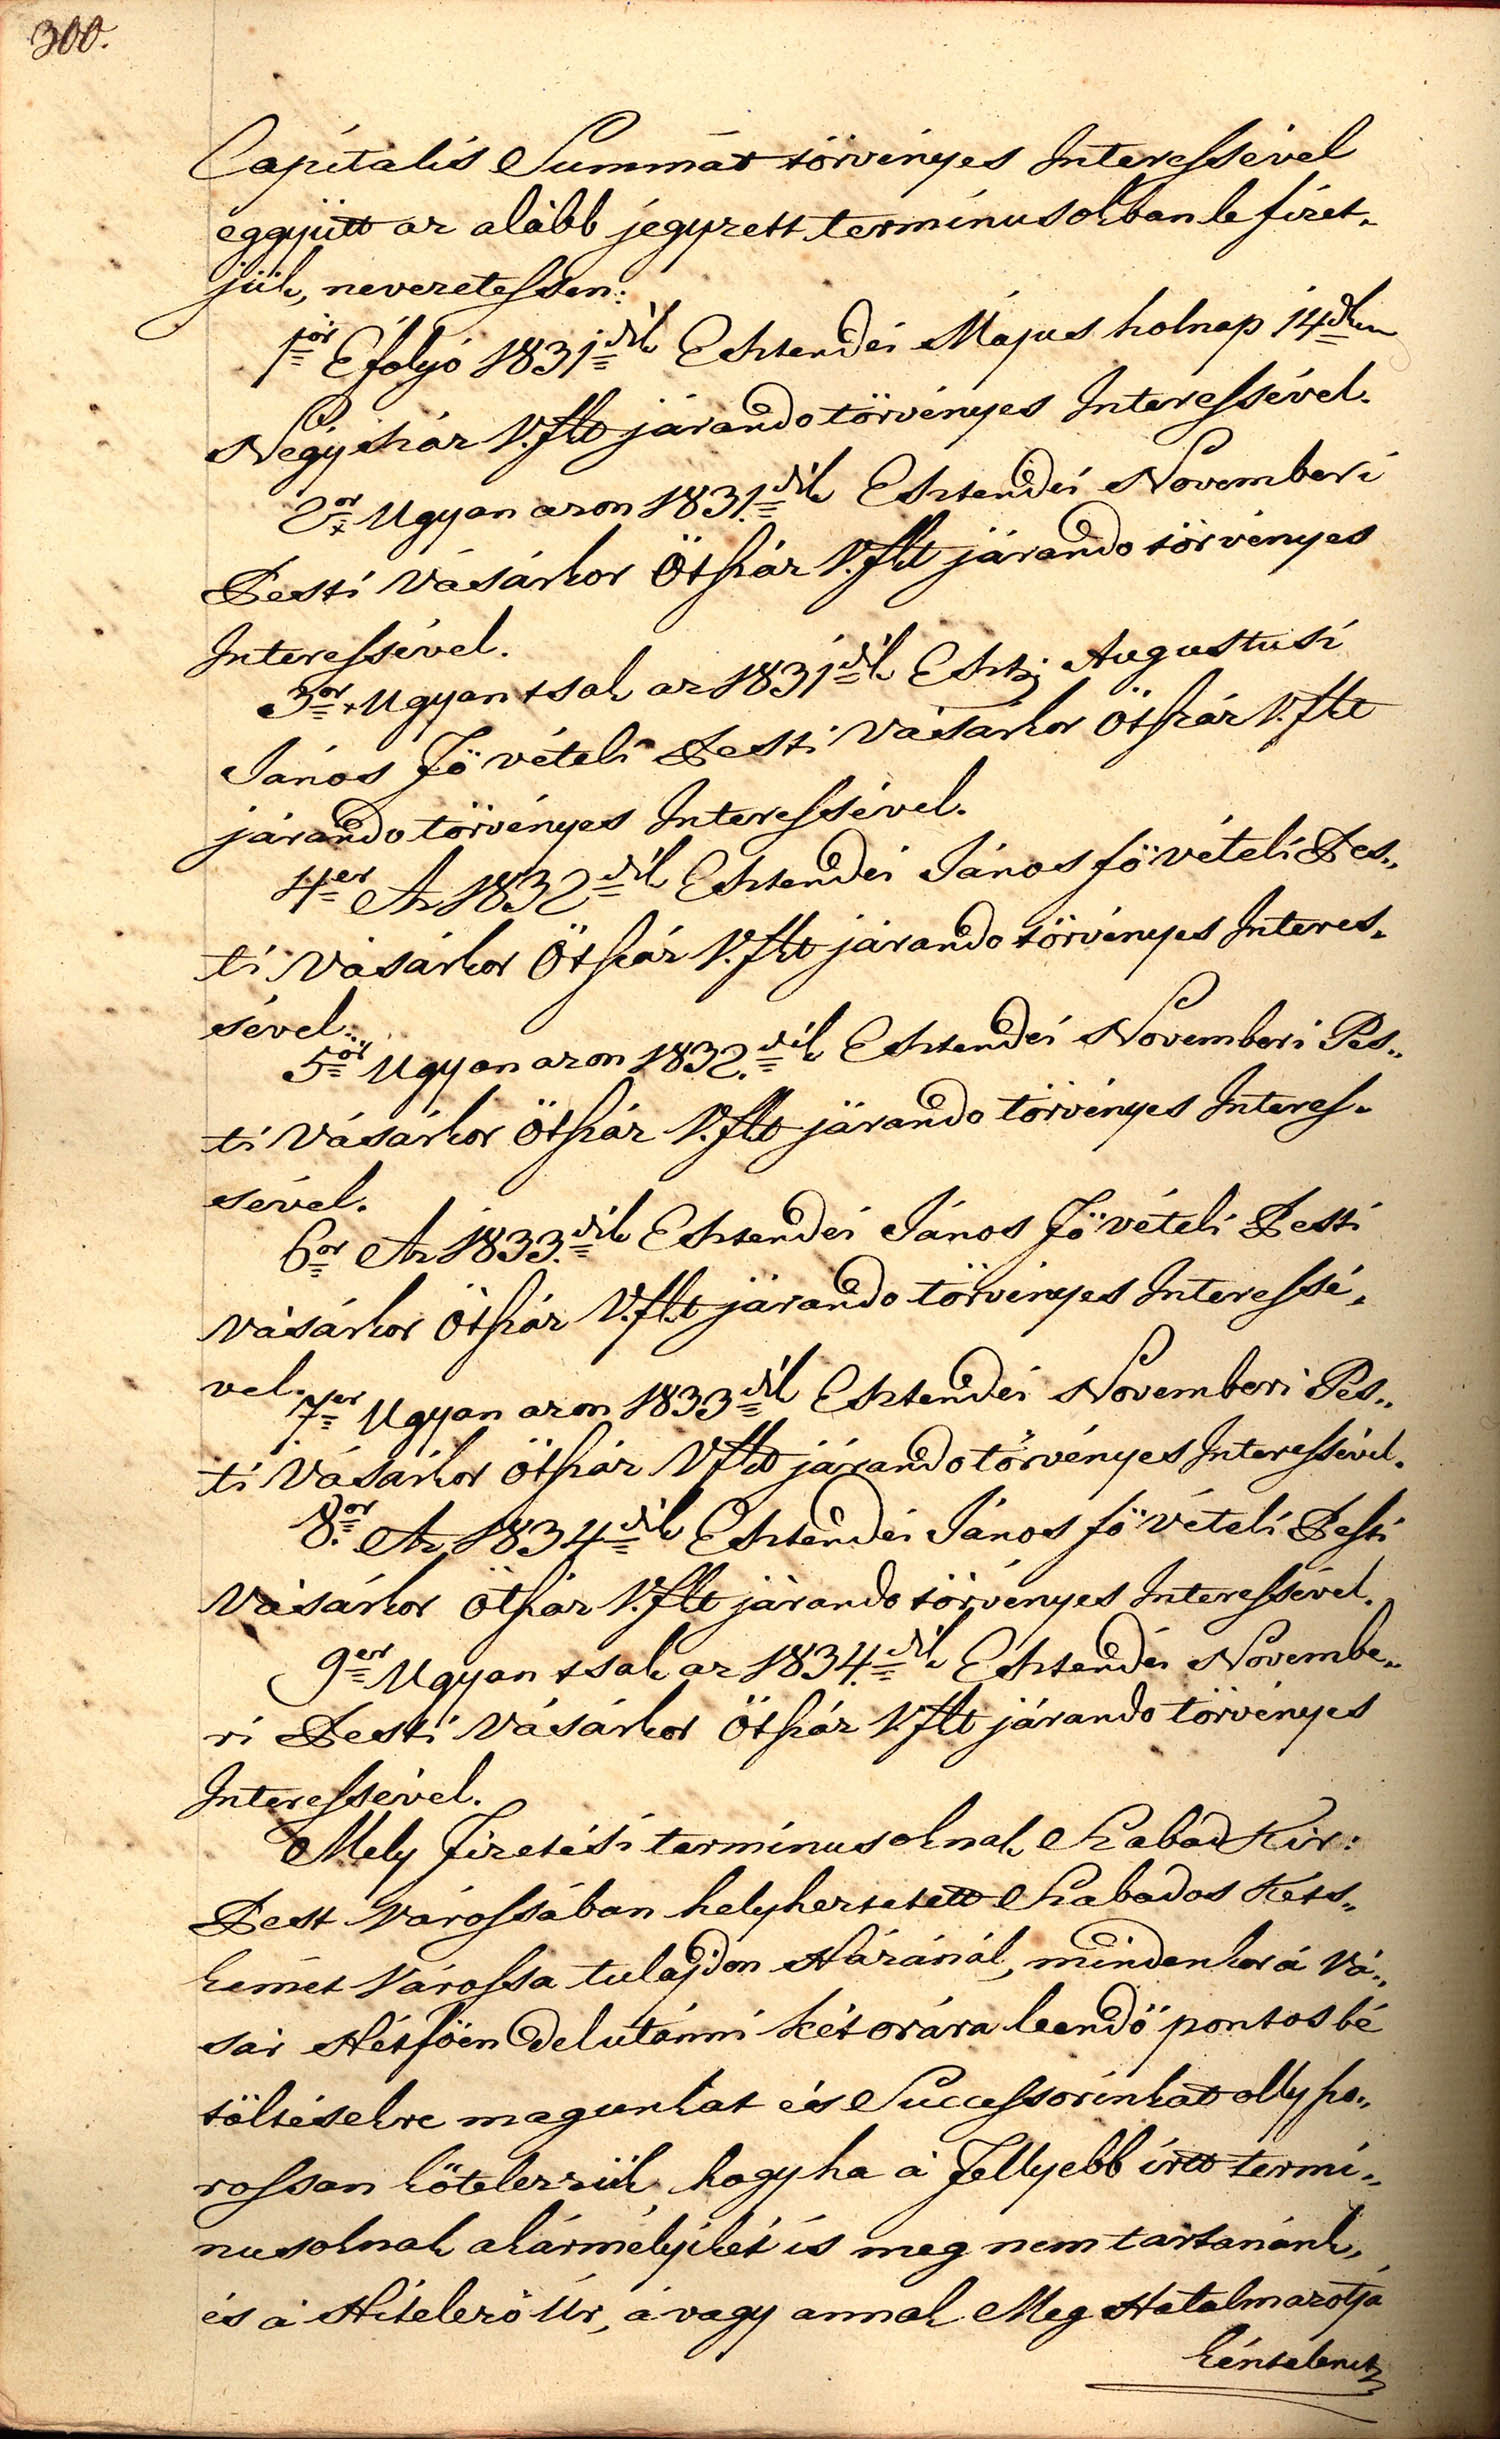 300.
Capitalis Summát törvényes Interessével
eggyütt az alább jegyzett terminusokban le fizet-
jük, nevezetessen:
1ör E folyó 1831dik Esztendei Május holnap 14dikén
Négyszáz V.ftt járando törvényes Interessével.
2or Ugyan azon 1831.dik Esztendei Novemberi
Pesti Vásárkor Ötszáz V.ftt járando törvényes
Interessével.
3or Ugyan tsak az 1831dik Eszt; Augustusi
János Fö vételi Pesti Vásárkor Ötszáz V.ftt
járando törvényes Interessével.
4er Az 1832dik Esztendei János fö vételi Pes-
ti Vásárkor Ötszáz V.ftt járando törvényes Interes-
sével.
5ör Ugyan azon 1832.dik Esztendei Novemberi Pes-
ti Vásárkor Ötszáz V.ftt járando törvényes Interes-
sével.
6or Az 1833.dik Esztendei János Fö vételi Pesti
Vásárkor Ötszáz V.ftt járando törvényes Interessé-
vel.
7er Ugyan azon 1833dik Esztendei Novemberi Pes-
ti Vásárkor Ötszáz Vftt járando törvényes Interessével.
8.or Az 1834dik Esztendei János fö vételi Pesti
Vásárkor Ötszáz V.ftt járando törvényes Interessével.
9er Ugyan tsak az 1834.dik Esztendei Novembe-
ri Pesti Vásárkor Ötszáz V.ftt járando törvényes
Interessével.
Mely Fizetési terminusoknak Szabad Kir:
Pest Várossában helyheztetett Szabados Kets-
kemét Várossa tulajdon Házánál, mindenkor á Vá-
sár Hétföén delutánni két orára leendö pontos bé
töltésekre magunkat és Successorinkat olly szo-
rossan kötelezzük, hogy ha á Fellyebb írtt termi-
nusoknak akármelyikét is meg nem tartanánk,
és á Hitelezö Úr, á vagy annak Meg Hatalmazottja